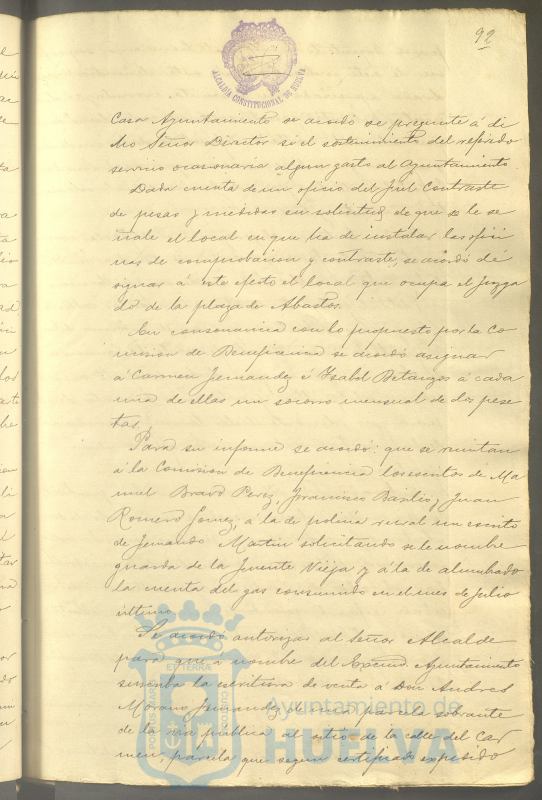 92
ALCALDIA CONSTITUCIONAL DE HUELVA
Casa Ayuntamiento se acordó se pregunte á di
cho Señor Director si el sostenimiento del referido
servicio ocasionaria algun gasto al Ayuntamiento
Dada cuenta de un oficio del Fiel Contraste
de pesas y medidas en solicitud de que se le se
ñale el local en que ha de instalar las ofici
nas de comprobacion y contraste, se acordó de
signar á este efecto el local que ocupa el Juzga
do de la plaza de Abastos.
En consonancia con lo propuesto por la Co
mision de Beneficencia se acordó asignar
á Carmen Fernandez é Ysabel Betanzos á cada
una de ellas un socorro mensual de dos pese
tas.
Para su informe se acordó: que se remitan
á la Comision de Beneficencia los escritos de Ma
nuel Bravo Perez, Francisco Basilio y Juan
Romero Gomez; á la de policia rural un escrito
de Fernando Martin solicitando se le nombre
guarda de la Fuente Vieja y á la de alumbrado
la cuenta del gas consumido en el mes de Julio
último.
Se acordó autorizar al Señor Alcalde
para que a nombre del Excmo. Ayuntamiento
suscriba la escritura de venta á Don Andres
Moreno Fernandez de una parcela sobrante
de la via pública al sitio de la calle del Car
men, parcela que segun certificado expedido
PORTUS MARIS ET TERRÆ CUSTODIA
Ayuntamiento de
HUELVA